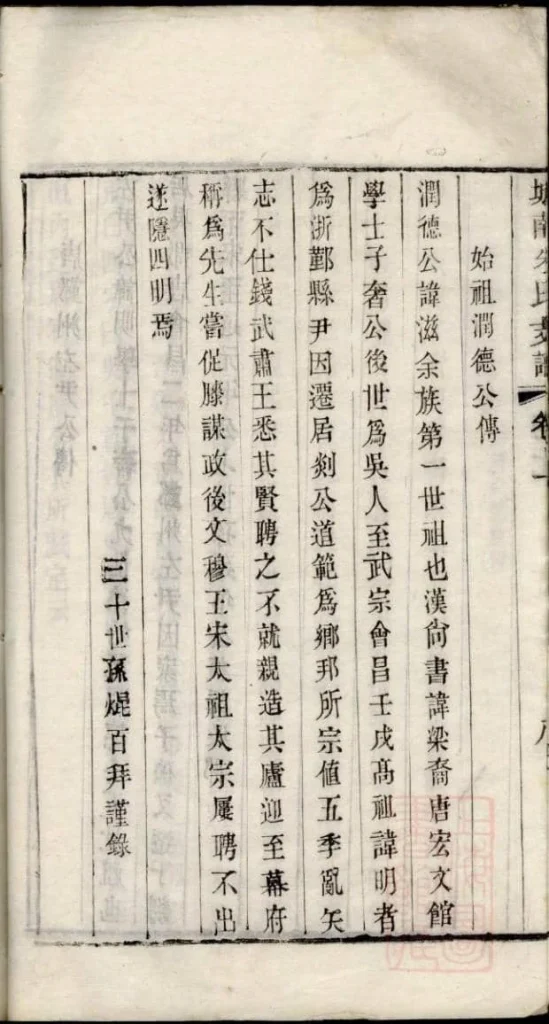 始祖潤德公傳
潤德公諱滋余族第一世祖也漢尙書諱梁裔唐宏文館
學士子奢公後世爲吳人至武宗會昌壬戌高祖諱明者
爲浙鄞縣尹因遷居剡公道範爲鄕邦所宗值五季亂矢
志不仕錢武肅王悉其賢聘之不就親造其廬迎至幕府
稱爲先生嘗促膝謀政後文穆王宋太祖太宗屢聘不出
遂隱四明焉
三十世孫焜百拜謹錄